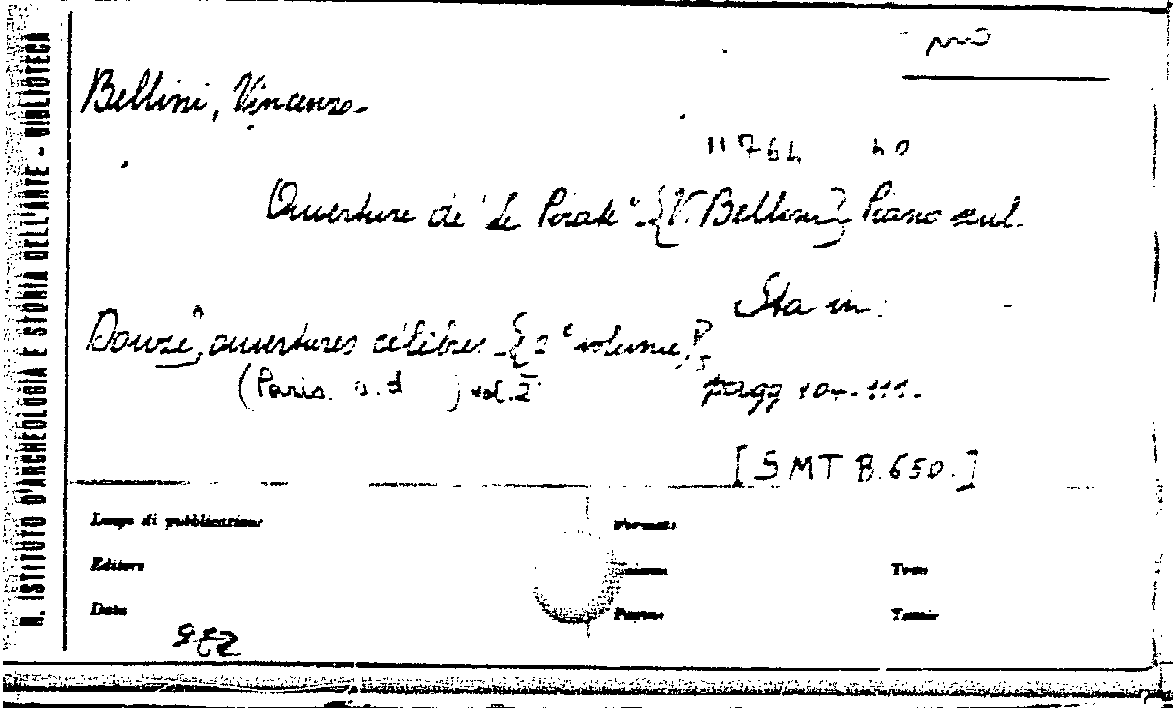 N. ISTITUTO D'ARCHEOLOGIA E STORIA DELL'ARTE - BIBLIOTECA
Bellini, Vincenzo
11764
Ouverture de "Le Pirate" [V. Bellini] Piano seul.
Sta in:
Douze ouvertures célèbres [2e volume],
(Paris. s.d ) vol. 2
pagg 104-111.
[SMT B.650.]
Luogo di pubblicazione
Formato
Editore
Volume
Tomo
Data
Pagine